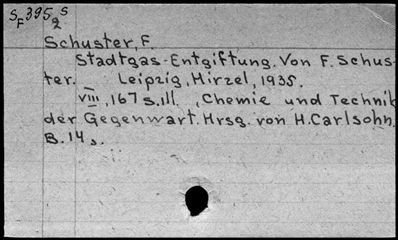 SF395 S
2
Schuster, F.
Stadtgas-Entgiftung. Von F. Schus-
ter. Leipzig, Hirzel, 1935.
VIII, 167 S. ill. , Chemie und Technik
der Gegenwart. Hrsg. von H. Carlsohn.
B. 14 ,.